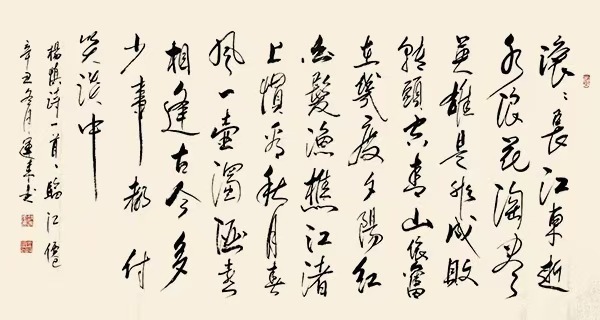 滚〻長江東逝
水浪花淘盡
英雄是非成敗
轉頭空青山依舊
在幾度夕陽紅
白髮漁樵江渚
上慣看秋月春
風一壺濁酒喜
相逢古今多
少事都付
笑談中
楊慎詩一首〻臨江僊
辛丑冬月書